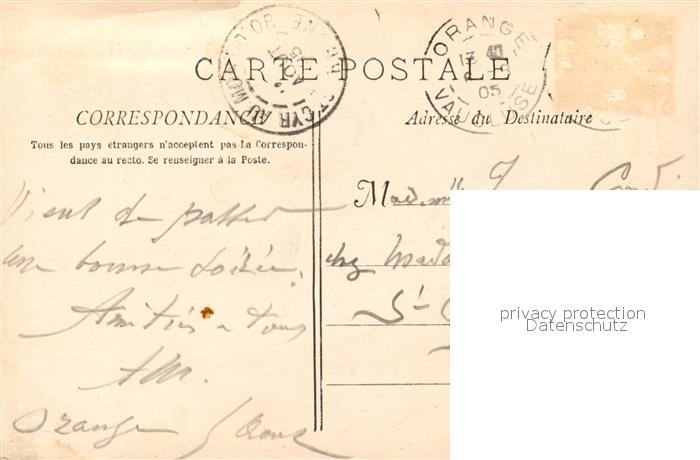 CARTE POSTALE
CORRESPONDANCE
Tous les pays étrangers n'acceptent pas la Correspon-
dance au recto. Se renseigner à la Poste.
Adresse du Destinataire
ORANGE
VAUCLUSE
05
ST CYR AU MONT D'OR
RHONE
Vient de passer
une bonne soirée.
Amitiés à tous
Orange
M Madlle
chez Mada
St
privacy protection
Datenschutz